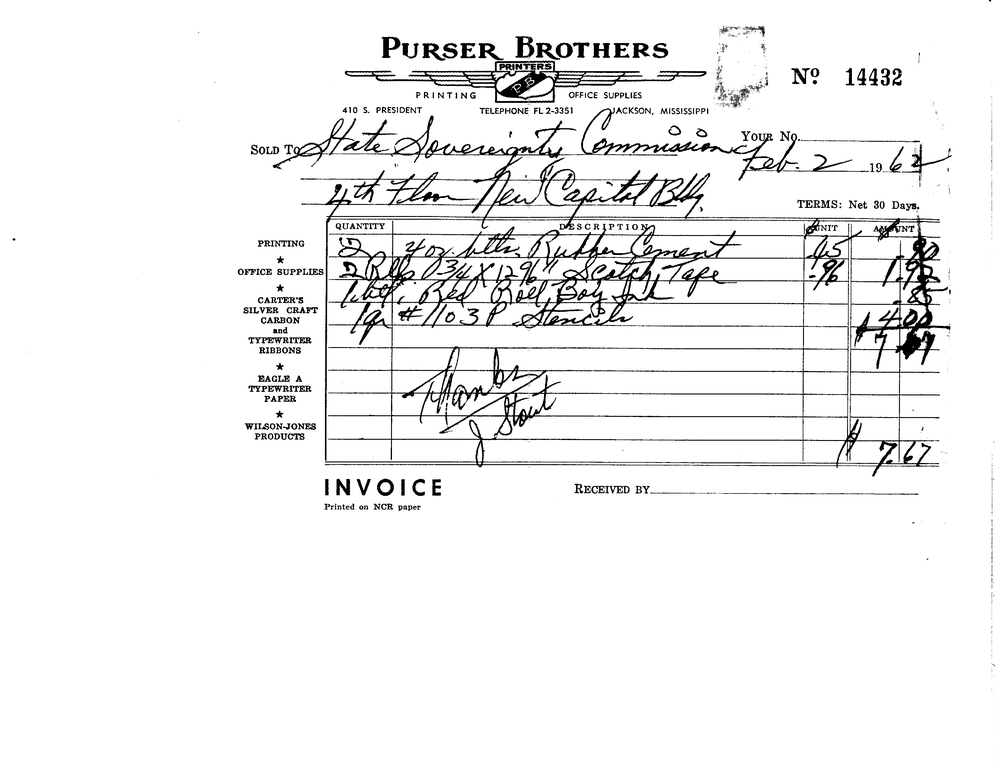 PURSER BROTHERS
PRINTERS
PB
PRINTING OFFICE SUPPLIES
410 S. PRESIDENT TELEPHONE FL 2-3351 JACKSON, MISSISSIPPI
Nº 14432
YOUR NO.
SOLD TO State Sovereignty Commission Feb. 2 1962
4th Floor New Capitol Bldg.
TERMS: Net 30 Days.
QUANTITY DESCRIPTION UNIT AMOUNT
2 4 oz. btls. Rubber Cement .45 .90
2 Rolls 3/4 X 1296" Scotch Tape .96 1.92
1 btl. Red Roll Boy Ink .85
1 qr #1103P Stencils 4.00
7
Thanks
J Stout
$ 7.67
PRINTING
★
OFFICE SUPPLIES
★
CARTER'S
SILVER CRAFT
CARBON
and
TYPEWRITER
RIBBONS
★
EAGLE A
TYPEWRITER
PAPER
★
WILSON-JONES
PRODUCTS
INVOICE
Printed on NCR paper
RECEIVED BY